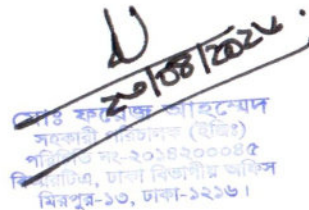 ২০/০৪/২০২৬
মোঃ ফয়েজ আহম্মেদ
সহকারী পরিচালক (ইঞ্জিঃ)
পরিচিতি নং-২০১৪২০০০৪৫
বিআরটিএ, ঢাকা বিভাগীয় অফিস
মিরপুর-১৩, ঢাকা-১২১৬।